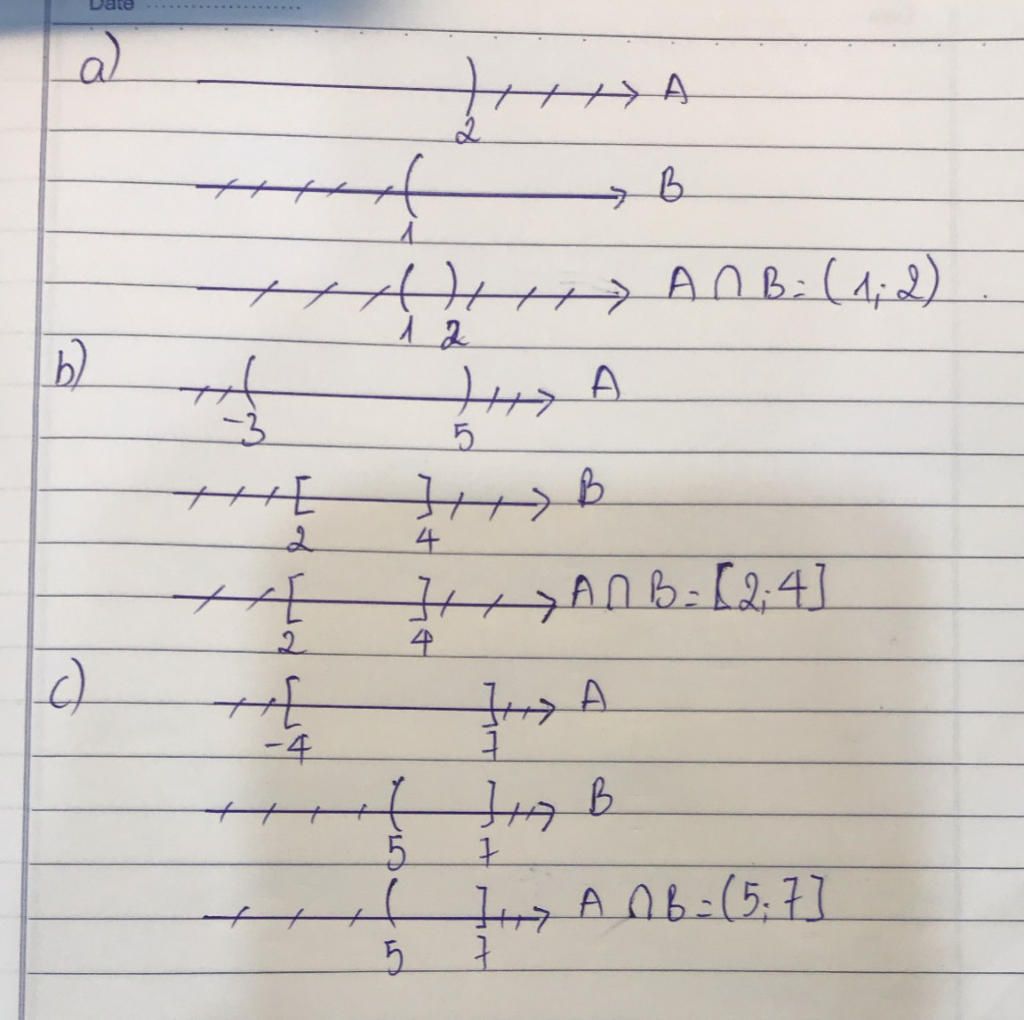 Date
a)
) A
2
( B
1
( ) A ∩ B = (1; 2)
1 2
b)
( ) A
-3 5
[ ] B
2 4
[ ] A ∩ B = [2; 4]
2 4
c)
[ ] A
-4 7
( ] B
5 7
( ] A ∩ B = (5; 7]
5 7